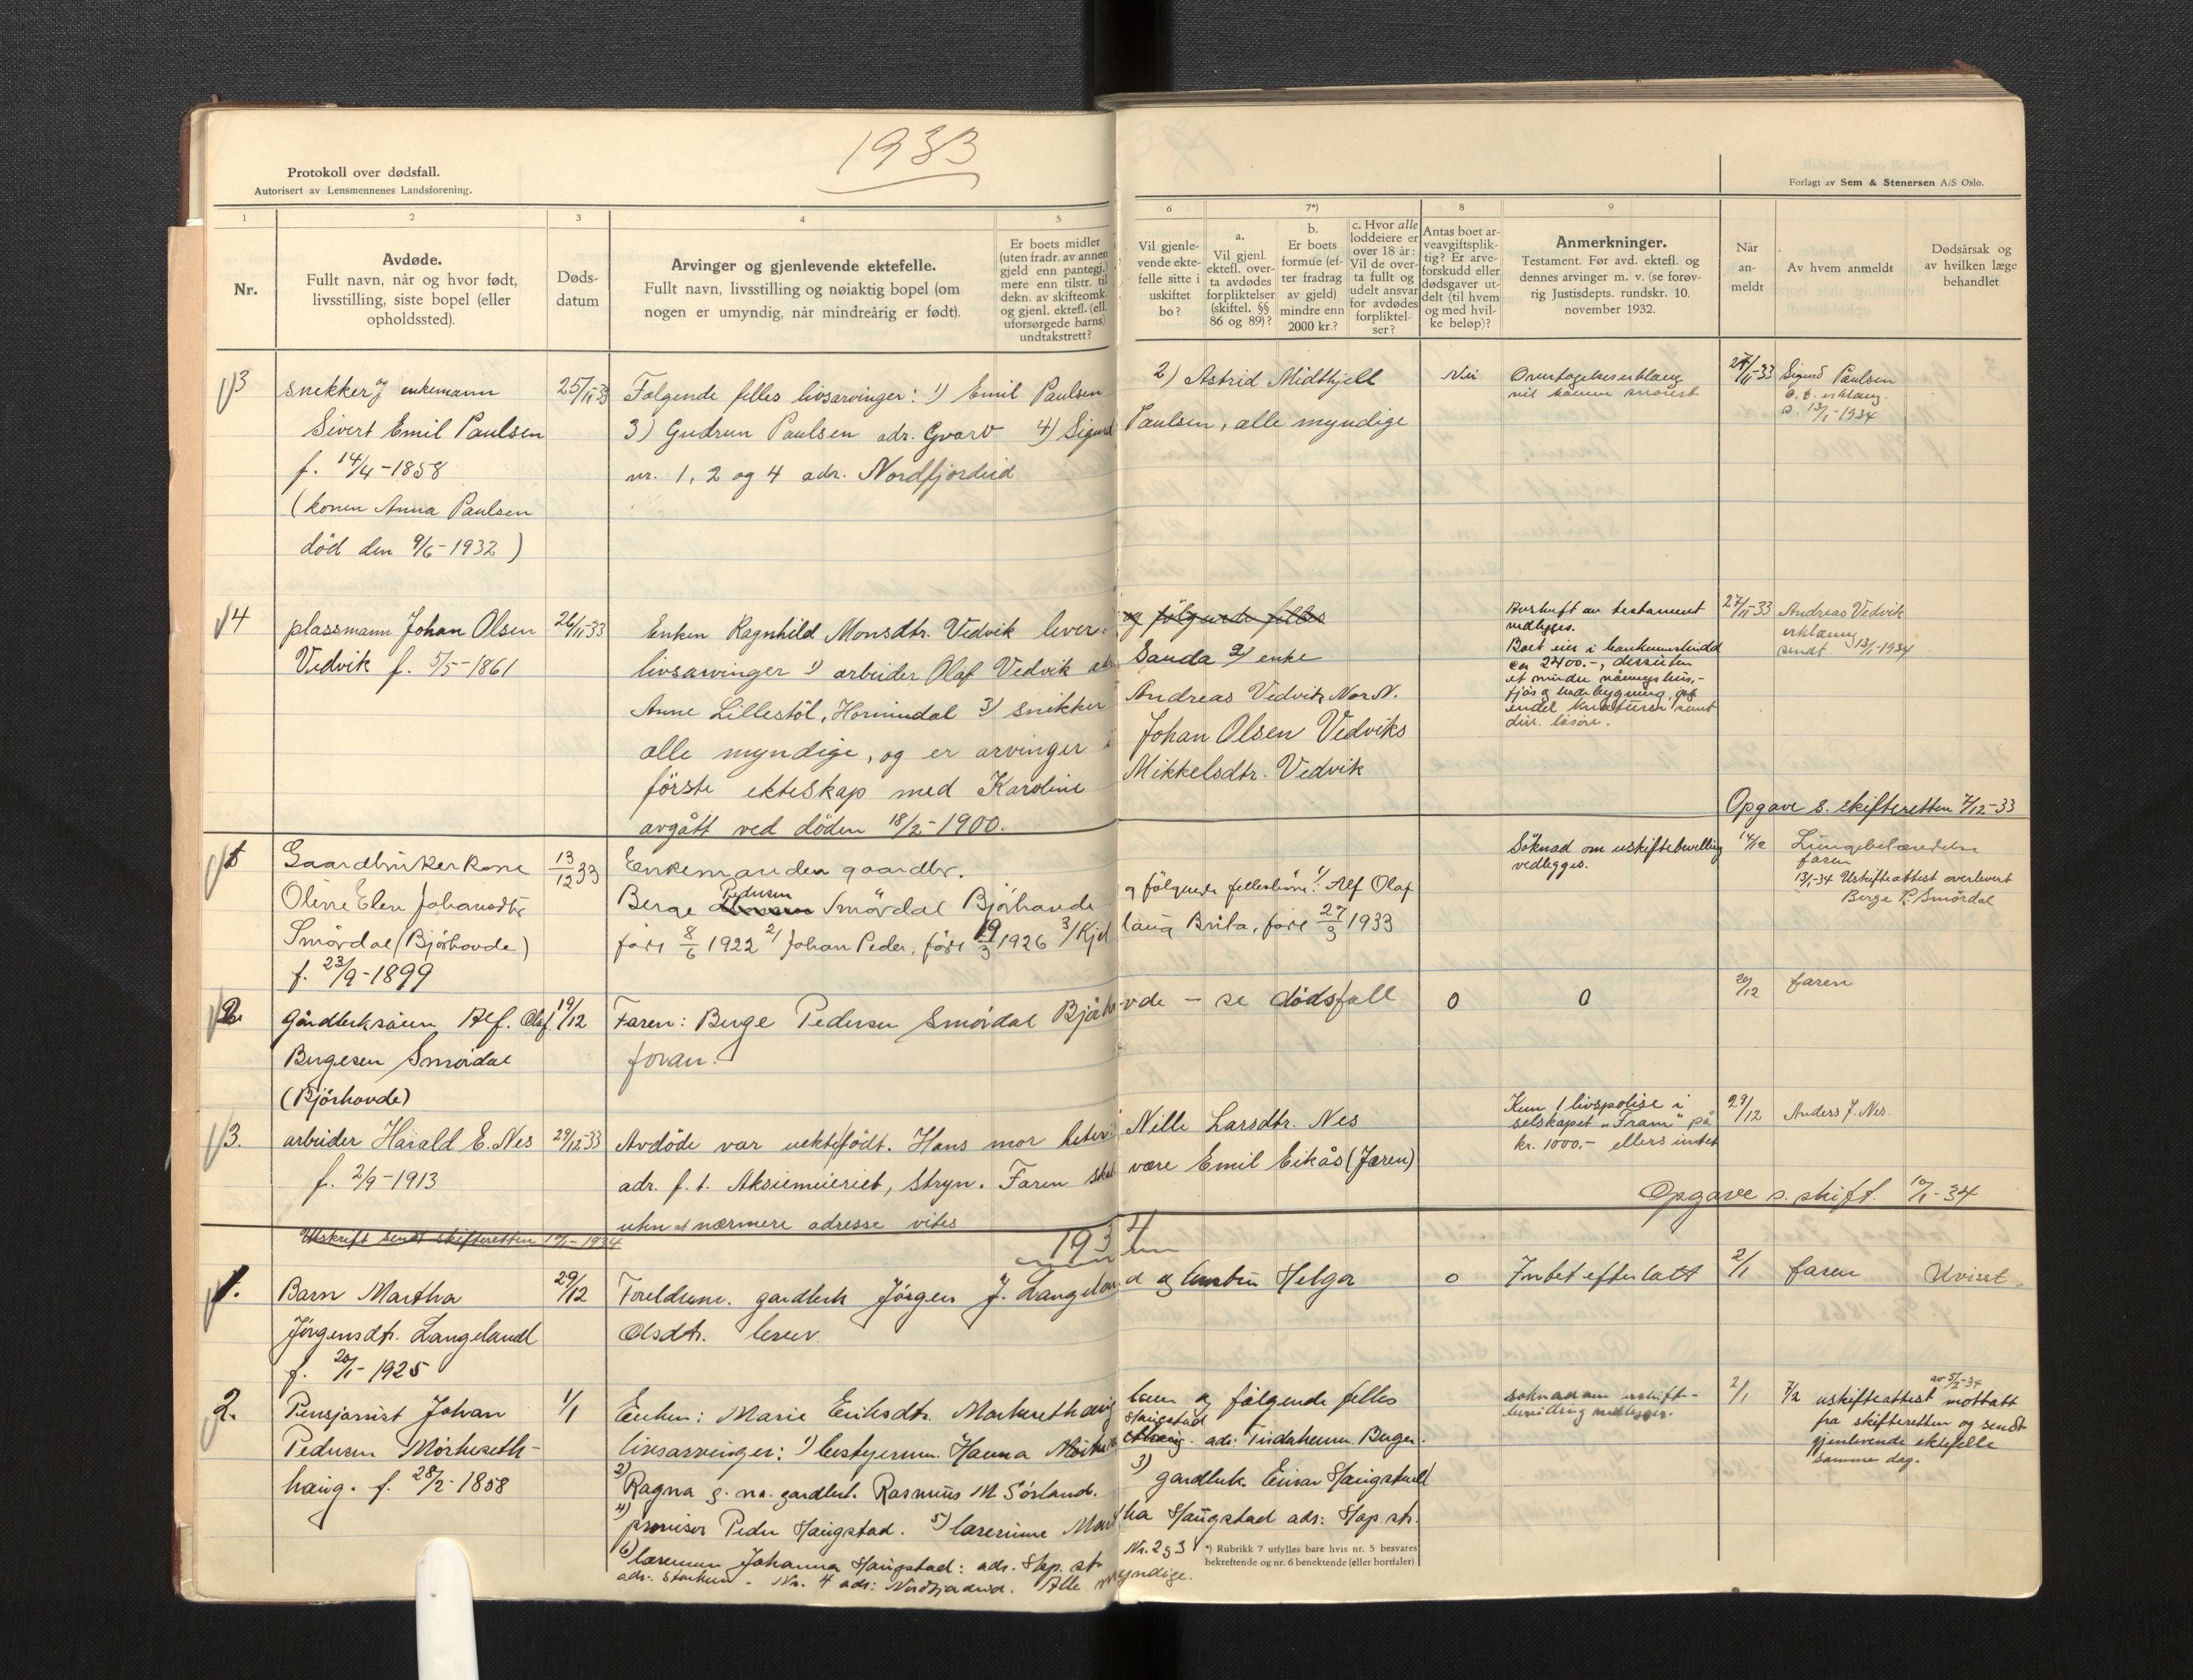 1933
Protokoll over dødsfall.
Autorisert av Lensmennenes Landsforening.
Forlagt av Sem & Stenersen A/S Oslo.
1
2
3
4
5
6
7*)
8
9
Nr.
Avdøde.
Fullt navn, når og hvor født,
livsstilling, siste bopel (eller
opholdssted).
Døds-
datum
Arvinger og gjenlevende ektefelle.
Fullt navn, livsstilling og nøiaktig bopel (om
nogen er umyndig, når mindreårig er født).
Er boets midler
(uten fradr. av annen
gjeld enn pantegj.)
mere enn tilstr. til
dekn. av skifteomk.
og gjenl. ektef. (ell.
uforsørgede barns)
undtakstrett?
Vil gjenle-
vende ekte-
felle sitte i
uskiftet
bo?
a.
Vil gjenl.
ektefl. over-
ta avdødes
forpliktelser
(skiftel. §§
86 og 89)?
b.
Er boets
formue (ef-
ter fradrag
av gjeld)
mindre enn
2000 kr.?
c. Hvor alle
loddeiere er
over 18 år:
Vil de over-
ta fullt og
udelt ansvar
for avdødes
forpliktel-
ser?
Antas boet ar-
veavgiftsplik-
tig? Er arve-
forskudd eller
dødsgaver ut-
delt (til hvem
og med hvil-
ke beløp)?
Anmerkninger.
Testament. Før avd. ektefl. og
dennes arvinger m. v. (se forøv-
rig Justisdepts. rundskr. 10.
november 1932.
Når
an-
meldt
Av hvem anmeldt
Dødsårsak og
av hvilken læge
behandlet
3 snekker og enkemann 25/11-33 Følgende felles livsarvinger: 1) Emil Paulsen 2) Astrid Midthjell Nei 27/11-33 Sigurd Paulsen
Sivert Emil Paulsen 3) Gudrun Paulsen adr. Gvarv 4) Sigurd Paulsen, alle myndige 13/1-1934
f. 14/4-1858 nr. 1, 2 og 4 adr. Nordfjordeid
(konen Anna Paulsen
død den 9/6-1932)
4 plassmann Johan Olsen 26/11-33 Enken Ragnhild Monsdtr. Vedvik lever: og følgende felles Avskrift av testament 27/11-33 Andreas Vedvik
vedlegges. erklæring
Vedvik f. 5/5-1861 livsarvinger 1) arbeider Olaf Vedvik adr Sauda 2) enke Boet eier i bankinnskudd sendt 13/1-1934
ca 2400.-, dessuten
Anne Lillestöl, Hornindal 3) snikker Andreas Vedvik, Nor N. et mindre våningshus,-
alle myndige, og er arvinger i Johan Olsen Vedviks div. lösöre.
förste ekteskap med Karoline Mikkelsdtr. Vedvik
avgått ved döden 18/2-1900.
Opgave s. skifteretten 7/12-33
1 Gaardbrukerkone 13/12 33 Enkemanden gaardbr. Söknad om uskiftebevilling 14/12 Lungebetændelse
vedlegges. faren
Oline Elen Johansdtr Berge Pedersen Smördal Björhovde og fölgende fellesbörn: 1) Alf Olaf 13/1-34 Uskifteattest overlevert
Berge P. Smördal
Smördal (Björhovde) föd 8/6 1922 2) Johan Peder, föd 19/3 1926 3) Kjellaug Brita, föd 27/3 1933
f. 23/9-1899
2. gårdbrksönn Alf. Olaf 19/12 Faren: Berge Pedersen Smördal Björhovde - se dödsfall 0 0 20/12 faren
Bergesen Smördal foran.
(Björhovde)
3. arbeider Harald E. Nes 29/12-33 Avdöde var uekte födt. Hans mor heter: Nille Larsdtr. Nes Kun 1 livspolise i 29/12 Anders J. Nes.
selskapet „Fram" på
kr. 1000,- ellers intet
f. 2/9-1913 adr. f. t. Aksiemeieriet, Stryn. Faren skal være Emil Eikås (Jæren)
uten at nærmere adresse vites
Opgave s. skift. 10/1-34
Utskrift sendt skifteretten 10/1-1934
1934
1. Barn Martha 29/12 Foreldrene. gardbrk Jörgen J. Langeland og hustru Helga 0 Intet efterlatt 2/1 faren Uvisst
Jörgensdtr. Langeland Olsdtr. lever.
f. 20/1-1925
2. Pensjonist Johan 1/1 Enken: Marie Eriksdtr. lever og fölgende felles söknad om uskifte- 2/1 7/2 uskifteattest av 5/2-34 mottatt
bevilling medlegges. fra skifteretten og sendt
Pedersen livsarvinger: 1) bestyrerinne Hanna Haugstad adr: gjenlevende ektefelle
samme dag.
haug. f. 28/2-1858 2) Ragna g. m. gardbrk. Rasmus M Sörland. 3) gardbruk. Einar Haugstad
4) Peder Haugstad. 5) lærerinne Martha Haugstad adr: Hop st.
6) Johanna Haugstad: adr. Hop. st. Nr. 2 og 3
Nr. 4 adr: Nordfjordeid. Alle myndige.
*) Rubrikk 7 utfylles bare hvis nr. 5 besvares
bekreftende og nr. 6 benektende (eller bortfaler)